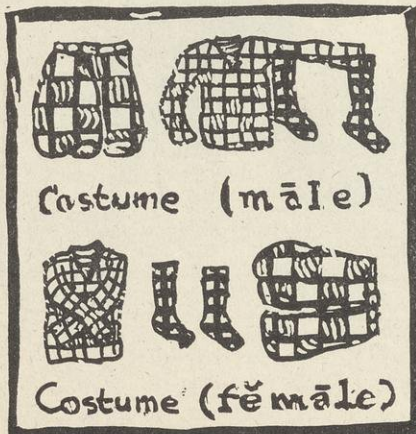 Costume (māle)
Costume (fĕmāle)